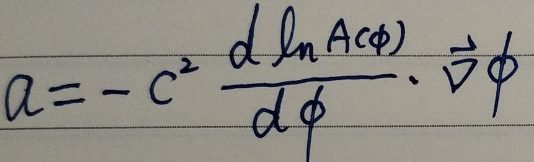 a = - c² \frac{d ln A(φ)}{dφ} · \vec{∇} φ